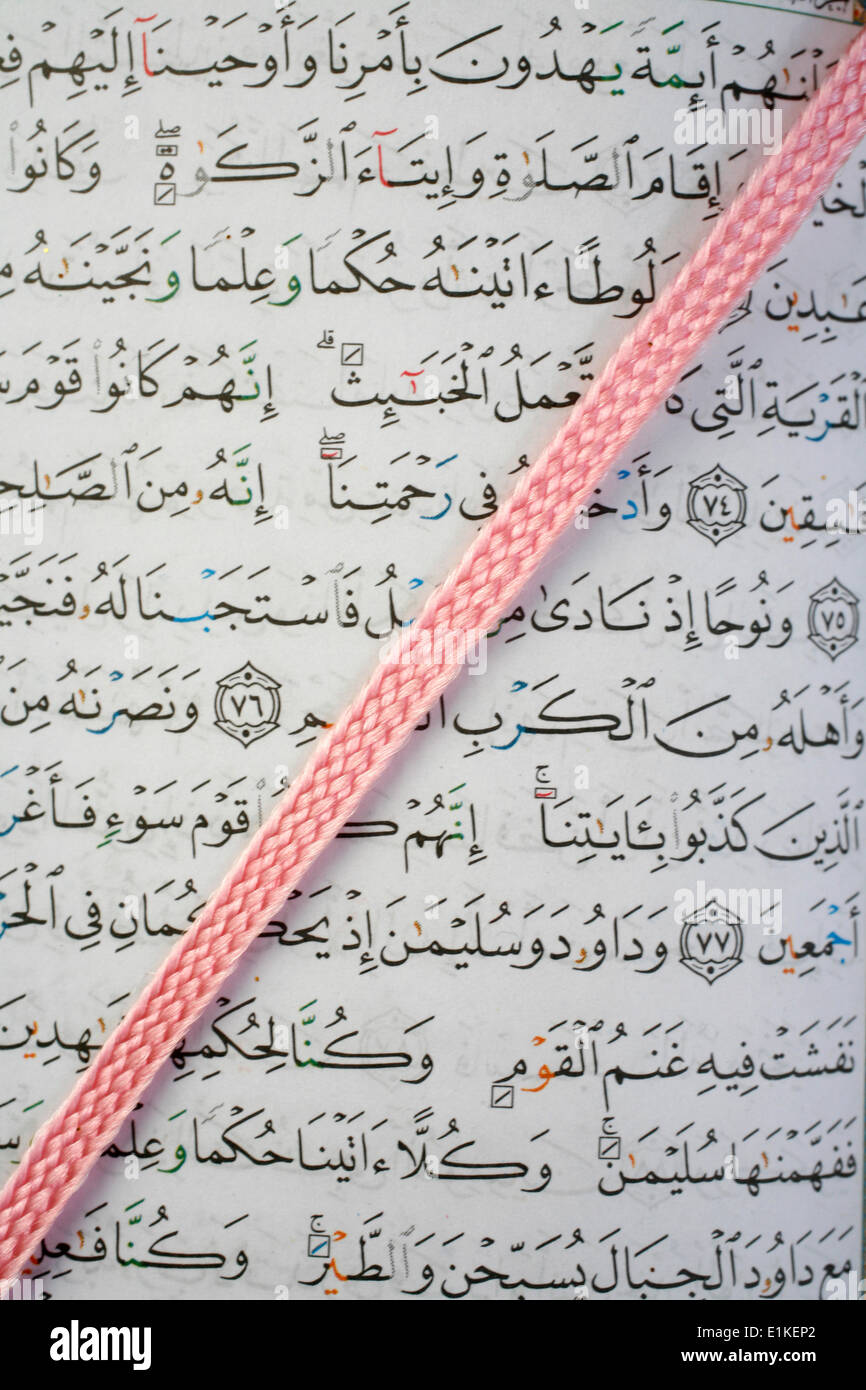 أَئِمَّةً يَهْدُونَ بِأَمْرِنَا وَأَوْحَيْنَآ إِلَيْهِمْ
إِقَامَ ٱلصَّلَوٰةِ وَإِيتَآءَ ٱلزَّكَوٰةِ ۖ وَكَانُوا۟
عَٰبِدِينَ وَلُوطًا ءَاتَيْنَٰهُ حُكْمًا وَعِلْمًا وَنَجَّيْنَٰهُ
ٱلْقَرْيَةِ ٱلَّتِى تَّعْمَلُ ٱلْخَبَٰٓئِثَ ۗ إِنَّهُمْ كَانُوا۟ قَوْمَ
فَٰسِقِينَ ٧٤ فِى رَحْمَتِنَآ ۖ إِنَّهُۥ مِنَ
٧٥ وَنُوحًا إِذْ نَادَىٰ فَٱسْتَجَبْنَا لَهُۥ
وَأَهْلَهُۥ مِنَ ٱلْكَرْبِ ٧٦ وَنَصَرْنَٰهُ مِنَ
ٱلَّذِينَ كَذَّبُوا۟ بِـَٔايَٰتِنَآ ۚ إِنَّهُمْ قَوْمَ سَوْءٍ
أَجْمَعِينَ ٧٧ وَدَاوُۥدَ وَسُلَيْمَٰنَ إِذْ فِى
نَفَشَتْ فِيهِ غَنَمُ ٱلْقَوْمِ وَكُنَّا لِحُكْمِهِمْ
فَفَهَّمْنَٰهَا سُلَيْمَٰنَ ۚ وَكُلًّا ءَاتَيْنَا حُكْمًا وَعِلْمًا
مَعَ دَاوُۥدَ ٱلْجِبَالَ يُسَبِّحْنَ وَٱلطَّيْرَ ۚ وَكُنَّا
alamy
alamy
Image ID: E1KEP2
www.alamy.com